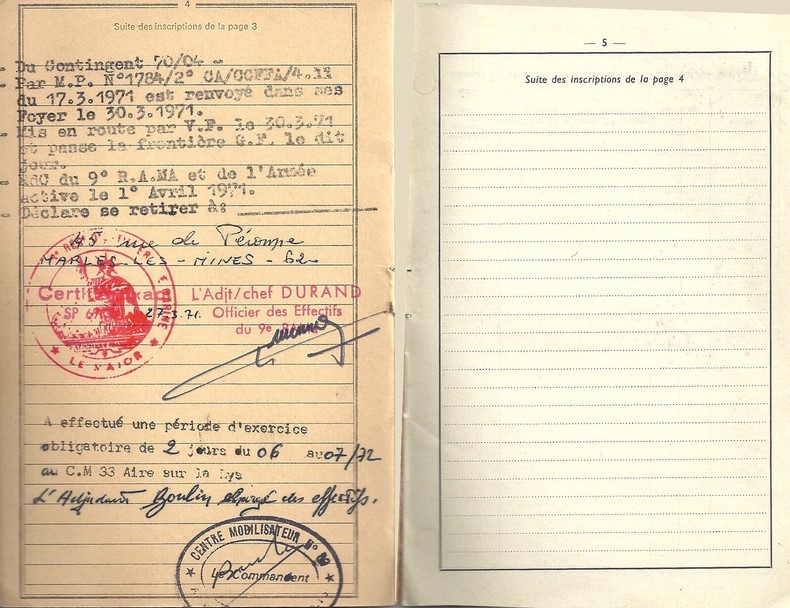 4
Suite des inscriptions de la page 3
Du Contingent 70/04 -
Par M.P. N°1784/2° CA/CCFFA/4.11
du 17.3.1971 est renvoyé dans ses
Foyer le 30.3.1971.
Mis en route par V.F. le 30.3.71
et passe la frontière G.F. le dit
jour.
RdC du 9° R.A.MA et de l'Armée
active le 1° Avril 1971.
Déclare se retirer à:
45 rue de Péronne
MARLES-LES-MINES-62
Certifié exact
SP 69
27.3.71.
★ LE MAJOR ★
L'Adjt/chef DURAND
Officier des Effectifs
du 9e
A effectué une période d'exercice
obligatoire de 2 jours du 06 au 07/72
au C.M 33 Aire sur la Lys
L'Adjudant Boulin chargé des effectifs.
★ CENTRE MOBILISATEUR N°
Le Commandant
— 5 —
Suite des inscriptions de la page 4